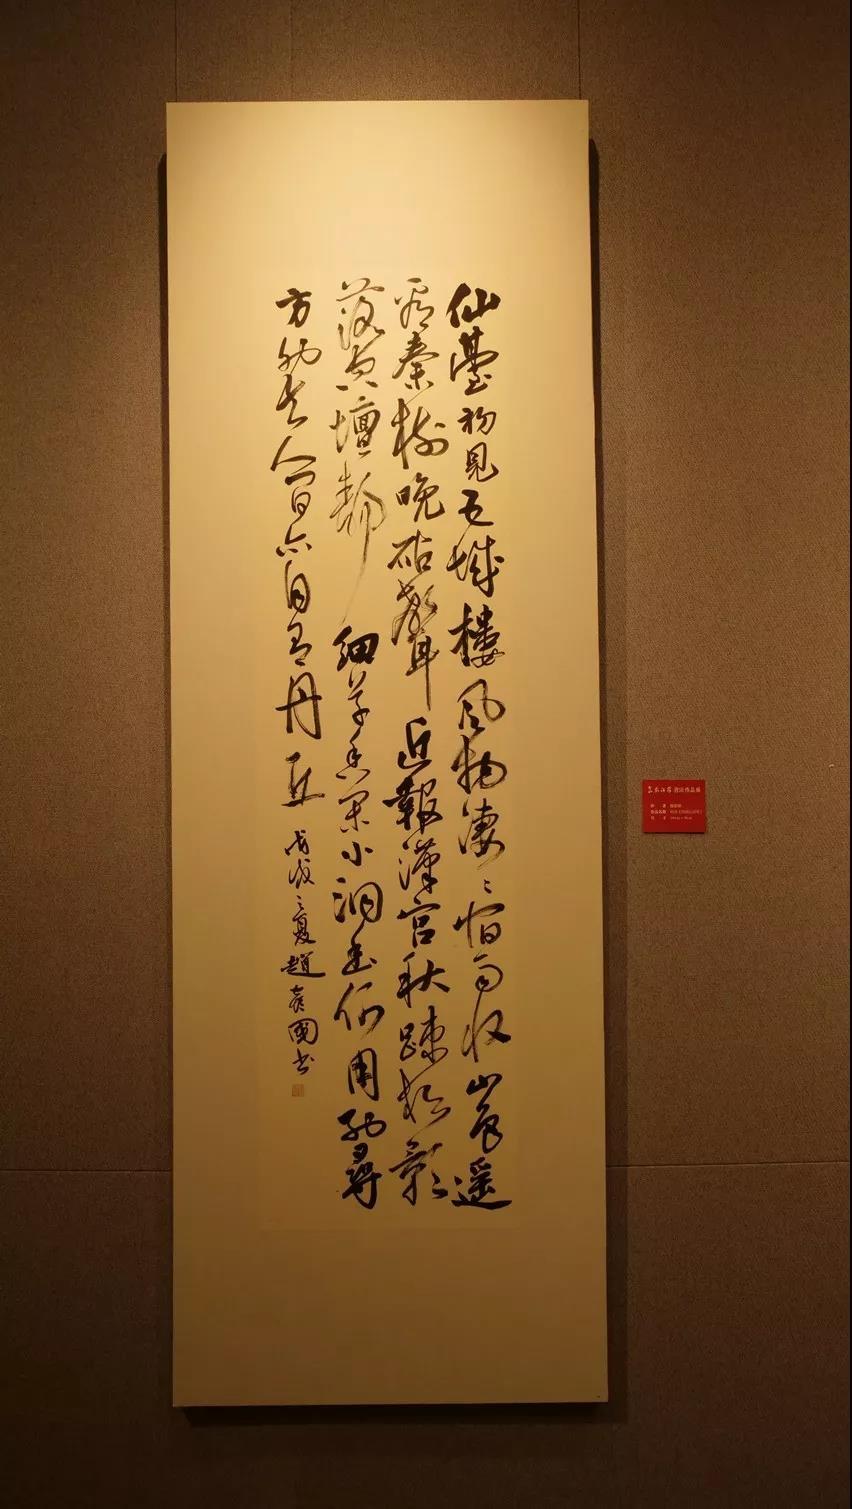 仙臺初見五城樓風物淒〻宿雨收山色遥
秦樹晚砧聲近報漢宮秋疎松影
落空壇靜細草香閑小洞幽何用别尋
方外去人間亦自有丹丘
戊戌之夏趙國书